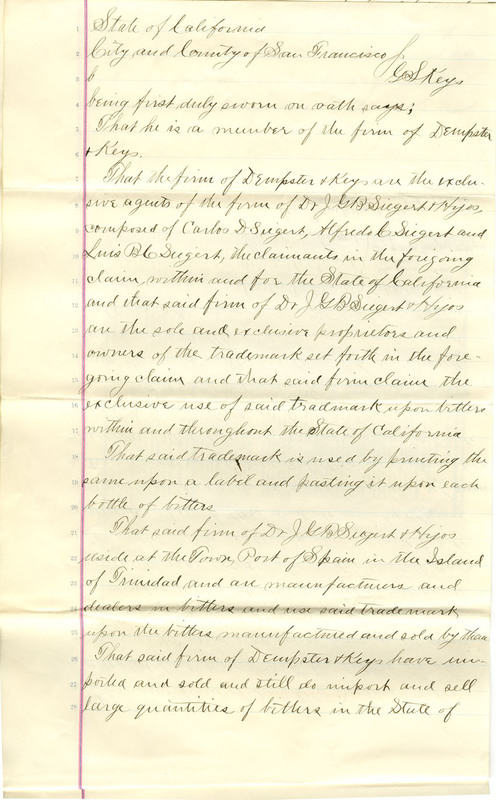 1 State of California
2 City and County of San Francisco
3 G S Keys
4 being first duly sworn on oath says;
5 That he is a member of the firm of Dempster
6 & Keys.
7 That the firm of Dempster & Keys are the exclu-
8 sive agents of the firm of Dr J G B Siegert & Hijos,
9 composed of Carlos D Siegert, Alfredo C Siegert and
10 Luis B C Siegert, the claimants in the foregoing
11 claim, within and for the State of California
12 and that said firm of Dr J G B Siegert & Hijos
13 are the sole and exclusive proprietors and
14 owners of the trademark set forth in the fore-
15 going claim and that said firm claim the
16 exclusive use of said tradmark upon bitters
17 within and throughout the State of California
18 That said trademark is used by printing the
19 same upon a label and pasting it upon each
20 bottle of bitters
21 That said firm of Dr J G B Siegert & Hijos
22 reside at the Town, Port of Spain in the Island
23 of Trinidad and are manufacturers and
24 dealers in bitters and use said trademark
25 upon the bitters manufactured and sold by them
26 That said firm of Dempster & Keys have im-
27 ported and sold and still do import and sell
28 large quantities of bitters in the State of